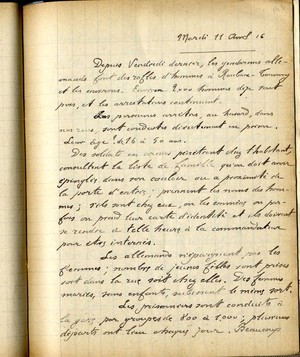 Mardi 11 Avril 16
Depuis Vendredi dernier, les gendarmes alle-
mands font des rafles d'hommes à Roubaix-Tourcoing
et les environs. Environ 2.000 hommes déjà sont
pris, et les arrestations continuent.
Les personnes arrêtées, au hasard, dans
nos rues, sont conduites directement en prison.
Leur âge : de 16 à 50 ans.
Des soldats en armes pénètrent chez l'habitant,
consultent la liste de famille qu'on doit avoir
épinglée dans son couloir ou à proximité de
la porte d'entrée ; prennent les noms des hom-
mes ; s'ils sont chez eux, on les emmène ou par-
fois on prend leur carte d'identité et ils doivent
se rendre à telle heure à la commandature
pour être internés.
Les allemands n'épargnent pas les
femmes ; nombre de jeunes filles sont prises
soit dans la rue soit chez elles. Des femmes
mariées, sans enfants, subissent le même sort.
Les prisonniers sont conduits à
la gare par groupes de 800 à 1.000 ; plusieurs
départs ont lieu chaque jour. Beaucoup